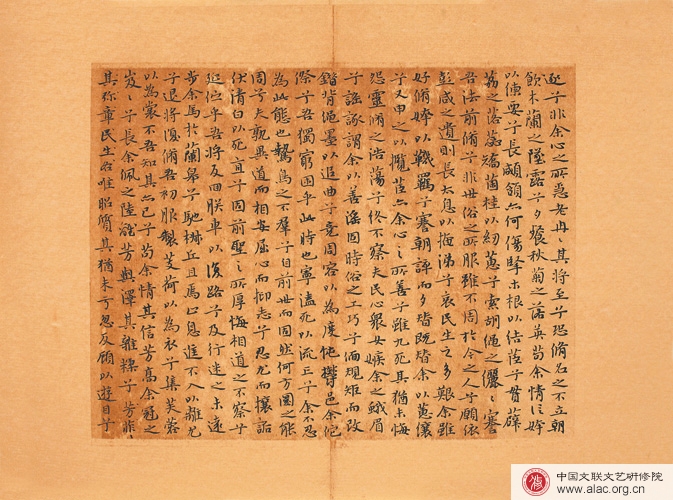 逐兮非余心之所急老冉〻其將至兮恐脩名之不立朝
飲木蘭之墜露兮夕餐秋菊之落英苟余情信姱
以練要兮長顑頷亦何傷擥木根以結茝兮貫薜
荔之落蕊矯菌桂以紉蕙兮索胡繩之纚〻謇
吾法前脩兮非世俗之所服雖不周於今之人兮願依
彭咸之遺則長太息以掩涕兮哀民生之多艱余雖
好脩姱以鞿羈兮謇朝誶而夕替既替余以蕙纕
兮又申之以攬茝亦余心之所善兮雖九死其猶未悔
怨靈脩之浩蕩兮終不察夫民心眾女嫉余之蛾眉
兮謠諑謂余以善淫固時俗之工巧兮偭規矩而改
錯背繩墨以追曲兮競周容以為度忳鬱邑余侘
傺兮吾獨窮困乎此時也寧溘死以流亡兮余不忍
為此態也鷙鳥之不羣兮自前世而固然何方圜之能
周兮夫孰異道而相安屈心而抑志兮忍尤而攘詬
伏清白以死直兮固前聖之所厚悔相道之不察兮
延佇乎吾將反回朕車以復路兮及行迷之未遠
步余馬於蘭皋兮馳椒丘且焉止息進不入以離尤
兮退將復脩吾初服製芰荷以為衣兮集芙蓉
以為裳不吾知其亦已兮苟余情其信芳高余冠之
岌〻兮長余佩之陸離芳與澤其雜糅兮芳菲〻
其弥章民生各唯昭質其猶未亏忽反顧以遊目兮
中国文联文艺研修院
www.alac.org.cn